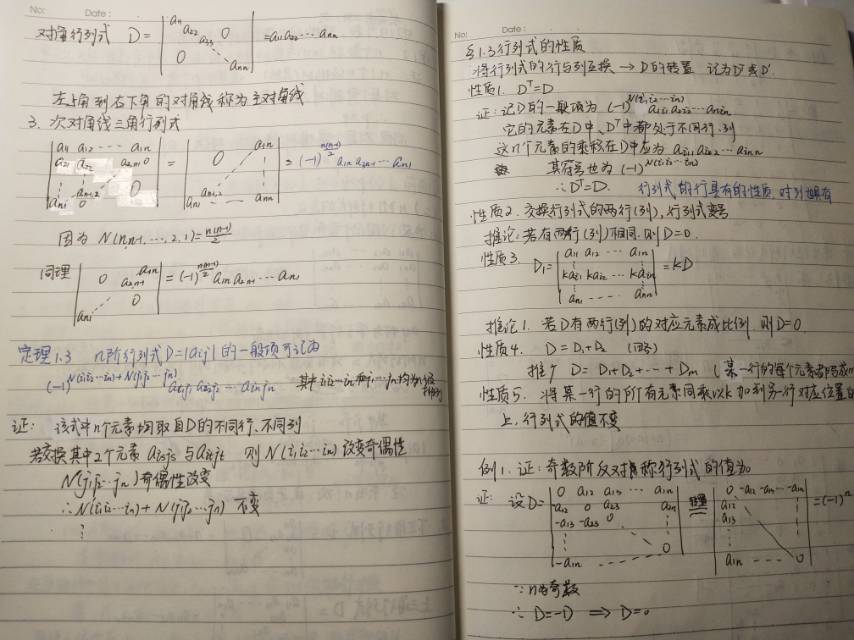 No: Date:
对角行列式 D = | a₁₁ a₂₂ a₃₃ 0 0 aₙₙ | = a₁₁a₂₂…aₙₙ
左上角到右下角的对角线称为主对角线
3. 次对角线三角行列式
| a₁₁ a₁₂ … a₁ₙ
a₂₁ a₂₂ a₂ₙ₋₁ 0
aₙ₋₁,₂
aₙ₁ 0 | = | 0 a₁ₙ
aₙ₋₁,₂
aₙ₁ … aₙₙ | = (-1)^{n(n-1)/2} a₁ₙ a₂ₙ₋₁ … aₙ₁
因为 N(n,n-1,…,2,1) = n(n-1)/2
同理 | 0 a₁ₙ
a₂,ₙ₋₁
aₙ₁ 0 | = (-1)^{n(n-1)/2} a₁ₙ a₂ₙ₋₁ … aₙ₁
定理1.3 n阶行列式D=|aᵢⱼ|的一般项可记为
(-1)^{N(i₁i₂…iₙ)+N(j₁j₂…jₙ)} aᵢ₁ⱼ₁ aᵢ₂ⱼ₂ … aᵢₙⱼₙ 其中i₁i₂…iₙ和j₁…jₙ均为n级排列
证: 该式中n个元素均取自D的不同行、不同列
若交换其中2个元素 aᵢₛⱼₛ与aᵢₜⱼₜ 则N(i₁i₂…iₙ)改变奇偶性
N(j₁j₂…jₙ)奇偶性改变
∴N(i₁i₂…iₙ)+N(j₁j₂…jₙ) 不变
⋮
No: Date:
§1.3行列式的性质
将行列式的行与列互换 → D的转置 记为Dᵀ或D′
性质1. Dᵀ=D
证: 记D的一般项为 (-1)^{N(i₁,i₂…iₙ)} a₁ᵢ₁a₂ᵢ₂…aₙᵢₙ
它的元素在D中、Dᵀ中都处于不同行、列
这n个元素的乘积在D中应为 aᵢ₁₁aᵢ₂₂…aᵢₙₙ
其符号也为 (-1)^{N(i₁i₂…iₙ)}
∴Dᵀ=D. 行列式的行具有的性质,对列也具有
性质2. 交换行列式的两行(列),行列式变号
推论:若有两行(列)相同.则D=0.
性质3. D₁ = | a₁₁ a₁₂ … a₁ₙ
kaᵢ₁ kaᵢ₂ … kaᵢₙ
aₙ₁ … aₙₙ | = kD
推论1. 若D有两行(列)的对应元素成比例.则D=0.
性质4. D = D₁+D₂
推广 D = D₁+D₂+…+Dₘ (某一行的每个元素都
性质5. 将某一行的所有元素同乘以k加到另一行对应位置
上,行列式的值不变
例1. 证:奇数阶反对称行列式的值为0
证: 设D= | 0 a₁₂ a₁₃ … a₁ₙ
-a₁₂ 0 a₂₃ a₂ₙ
-a₁₃ -a₂₃ 0
⋮ ⋮
-a₁ₙ … 0 | 转置 | 0 -a₁₂ -a₁₃ … -a₁ₙ
a₁₂
a₁₃
⋮
a₁ₙ … 0 | = (-1)ⁿ
∵n为奇数
∴ D=-D ⟹ D=0